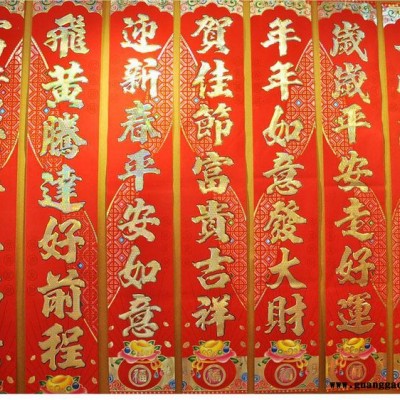 飛黃騰達好前程
迎新春平安如意
賀佳節富貴吉祥
年年如意發大財
歲歲平安走好運
福
福
www.guanggao